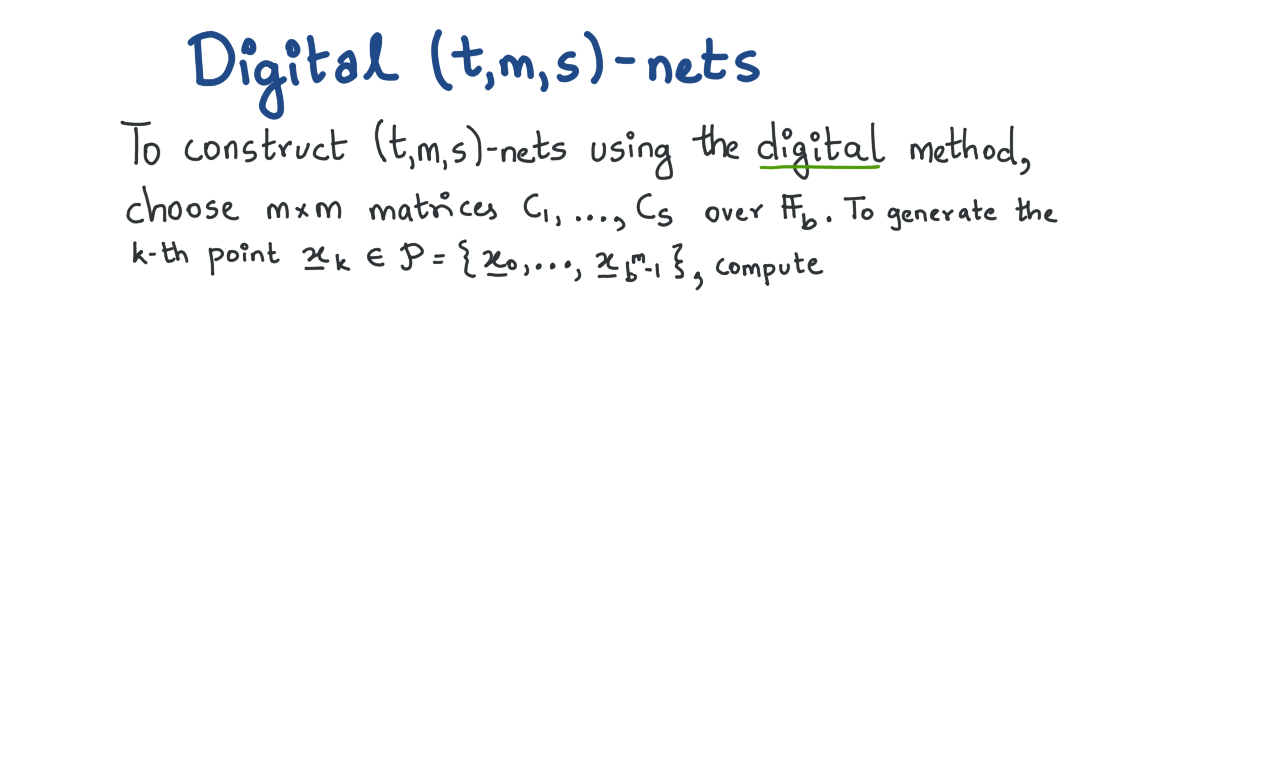 Digital (t,m,s)-nets
To construct (t,m,s)-nets using the digital method,
choose m×m matrices C₁, ..., Cₛ over 𝔽_b. To generate the
k-th point x̲ₖ ∈ 𝒫 = {x̲₀,..., x̲_{b^m-1}}, compute